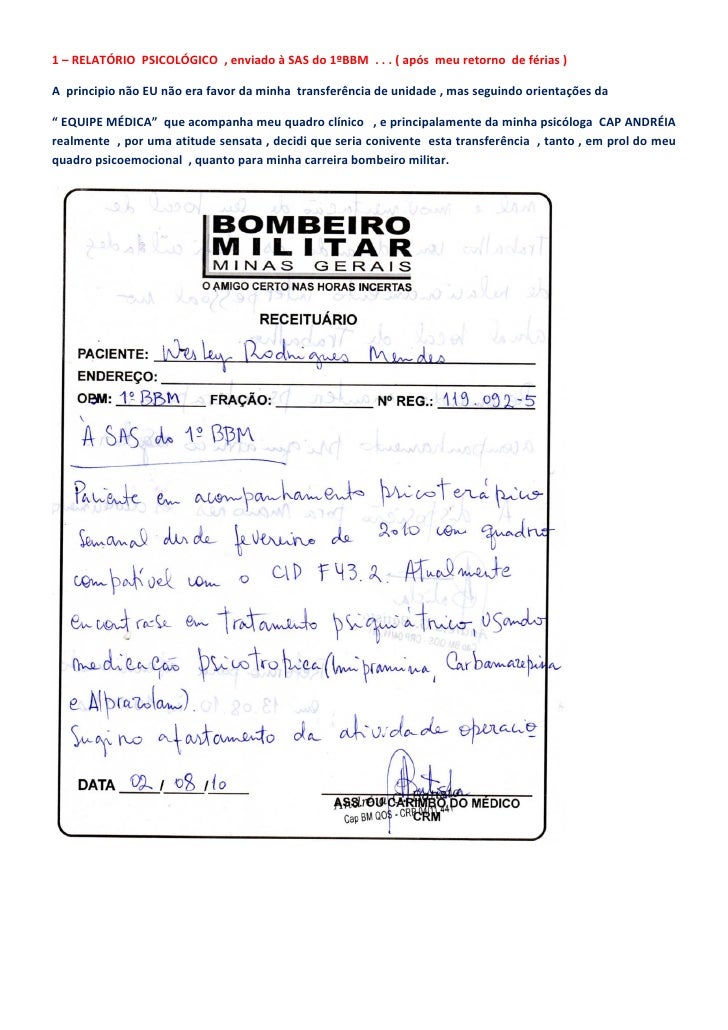 1 – RELATÓRIO PSICOLÓGICO , enviado à SAS do 1ºBBM . . . ( após meu retorno de férias )
A principio não EU não era favor da minha transferência de unidade , mas seguindo orientações da
“ EQUIPE MÉDICA” que acompanha meu quadro clínico , e principalamente da minha psicóloga CAP ANDRÉIA
realmente , por uma atitude sensata , decidi que seria conivente esta transferência , tanto , em prol do meu
quadro psicoemocional , quanto para minha carreira bombeiro militar.
BOMBEIRO
MILITAR
MINAS GERAIS
O AMIGO CERTO NAS HORAS INCERTAS
RECEITUÁRIO
PACIENTE: Wesley Rodrigues Mendes
ENDEREÇO:
OBM: 1º BBM FRAÇÃO: Nº REG.: 119.092-5
À SAS do 1º BBM
Paciente em acompanhamento psicoterápico
semanal desde fevereiro de 2010 com quadro
compatível com o CID F43.2. Atualmente
encontra-se em tratamento psiquiátrico, usando
medicação psicotropica (Imipramina, Carbamazepina
e Alprazolam).
Sugiro afastamento da atividade operacio
DATA 02 / 08 / 10
ASS. OU CARIMBO DO MÉDICO
Cap BM QOS - CRP
CRM